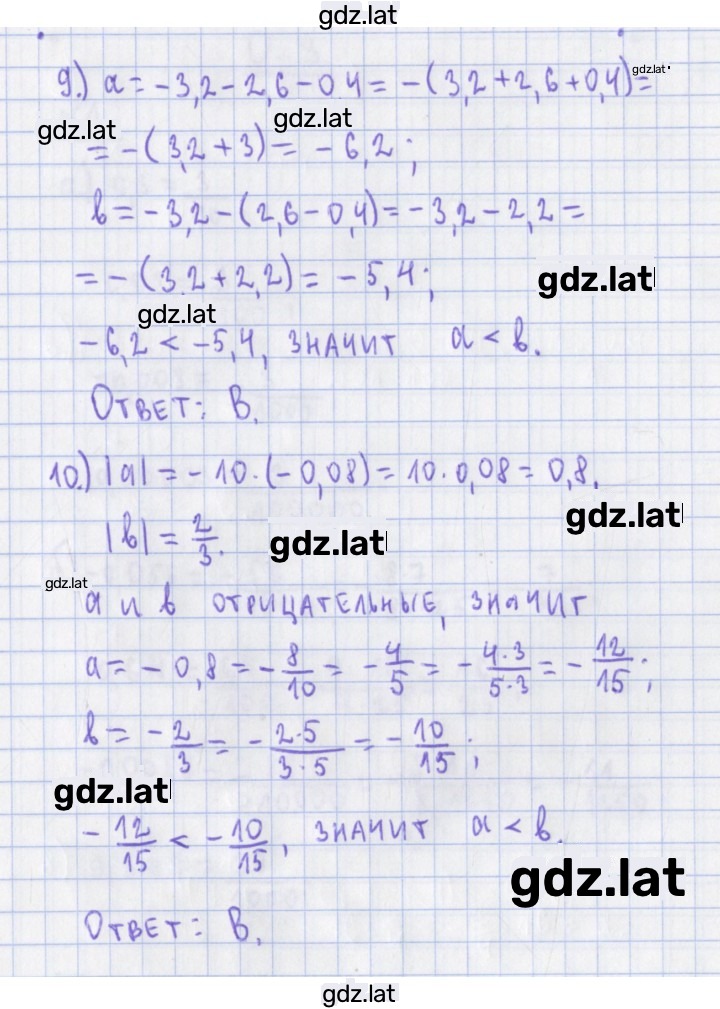 gdz.lat
9.) a = -3,2 - 2,6 - 0 4 = -(3,2 + 2,6 + 0,4) =
gdz.lat
gdz.lat
gdz.lat
= -(3,2 + 3) = -6,2;
b = -3,2 - (2,6 - 0,4) = -3,2 - 2,2 =
= -(3,2 + 2,2) = -5,4;
gdz.lat
gdz.lat
-6,2 < -5,4, ЗНАЧИТ a < b.
ОТВЕТ: В.
10.) |a| = -10·(-0,08) = 10·0,08 = 0,8.
gdz.lat
|b| = 2/3.
gdz.lat
gdz.lat
a и b ОТРИЦАТЕЛЬНЫЕ, ЗНАЧИТ
a = -0,8 = -8/10 = -4/5 = -4·3/5·3 = -12/15;
b = -2/3 = -2·5/3·5 = -10/15;
gdz.lat
-12/15 < -10/15, ЗНАЧИТ a < b.
gdz.lat
ОТВЕТ: В.
gdz.lat